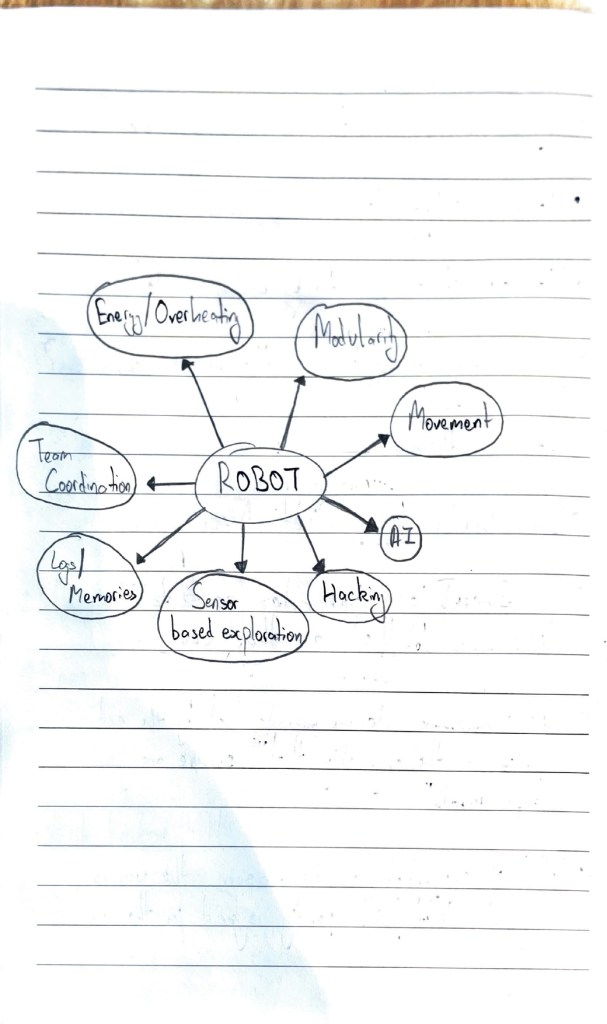 Energy/Overheating
Modularity
Movement
Team
Coordination
ROBOT
AI
Logs/
Memories
Sensor
based exploration
Hacking